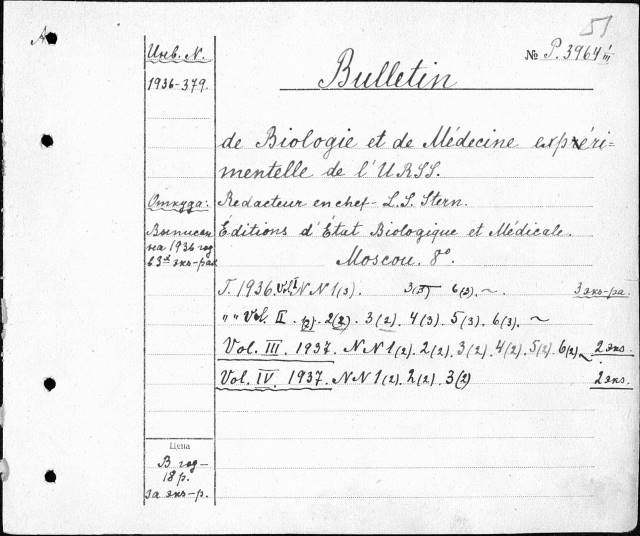 51
№ P. 3964 I/III
Инв. N.
1936-379.
Bulletin
de Biologie et de Médecine expéri-
mentelle de l'URSS.
Откуда:
Redacteur en chef - L.S. Stern.
Выписан
на 1936 год
в 3х экз-рах
Éditions d'État Biologique et Médicale.
Moscou. 8º.
T. 1936. Vol. I NN 1(3). 3(3) 6(3). ~ 3 экз-ра.
" " Vol. II . 2(2) . 3(2) . 4(3) . 5(3) . 6(3) . ~
Vol. III. 1937. NN 1(2). 2(2). 3(2). 4(2). 5(2). 6(2) ~ 2 экз.
Vol. IV. 1937. NN 1(2). 2(2). 3(2) 2 экз.
Цена
В год -
18 р.
за экз-р.